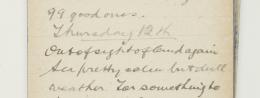 99 good ones.
Thursday 12th
Out of sight of land again
Sea pretty calm but dull
weather. For something to